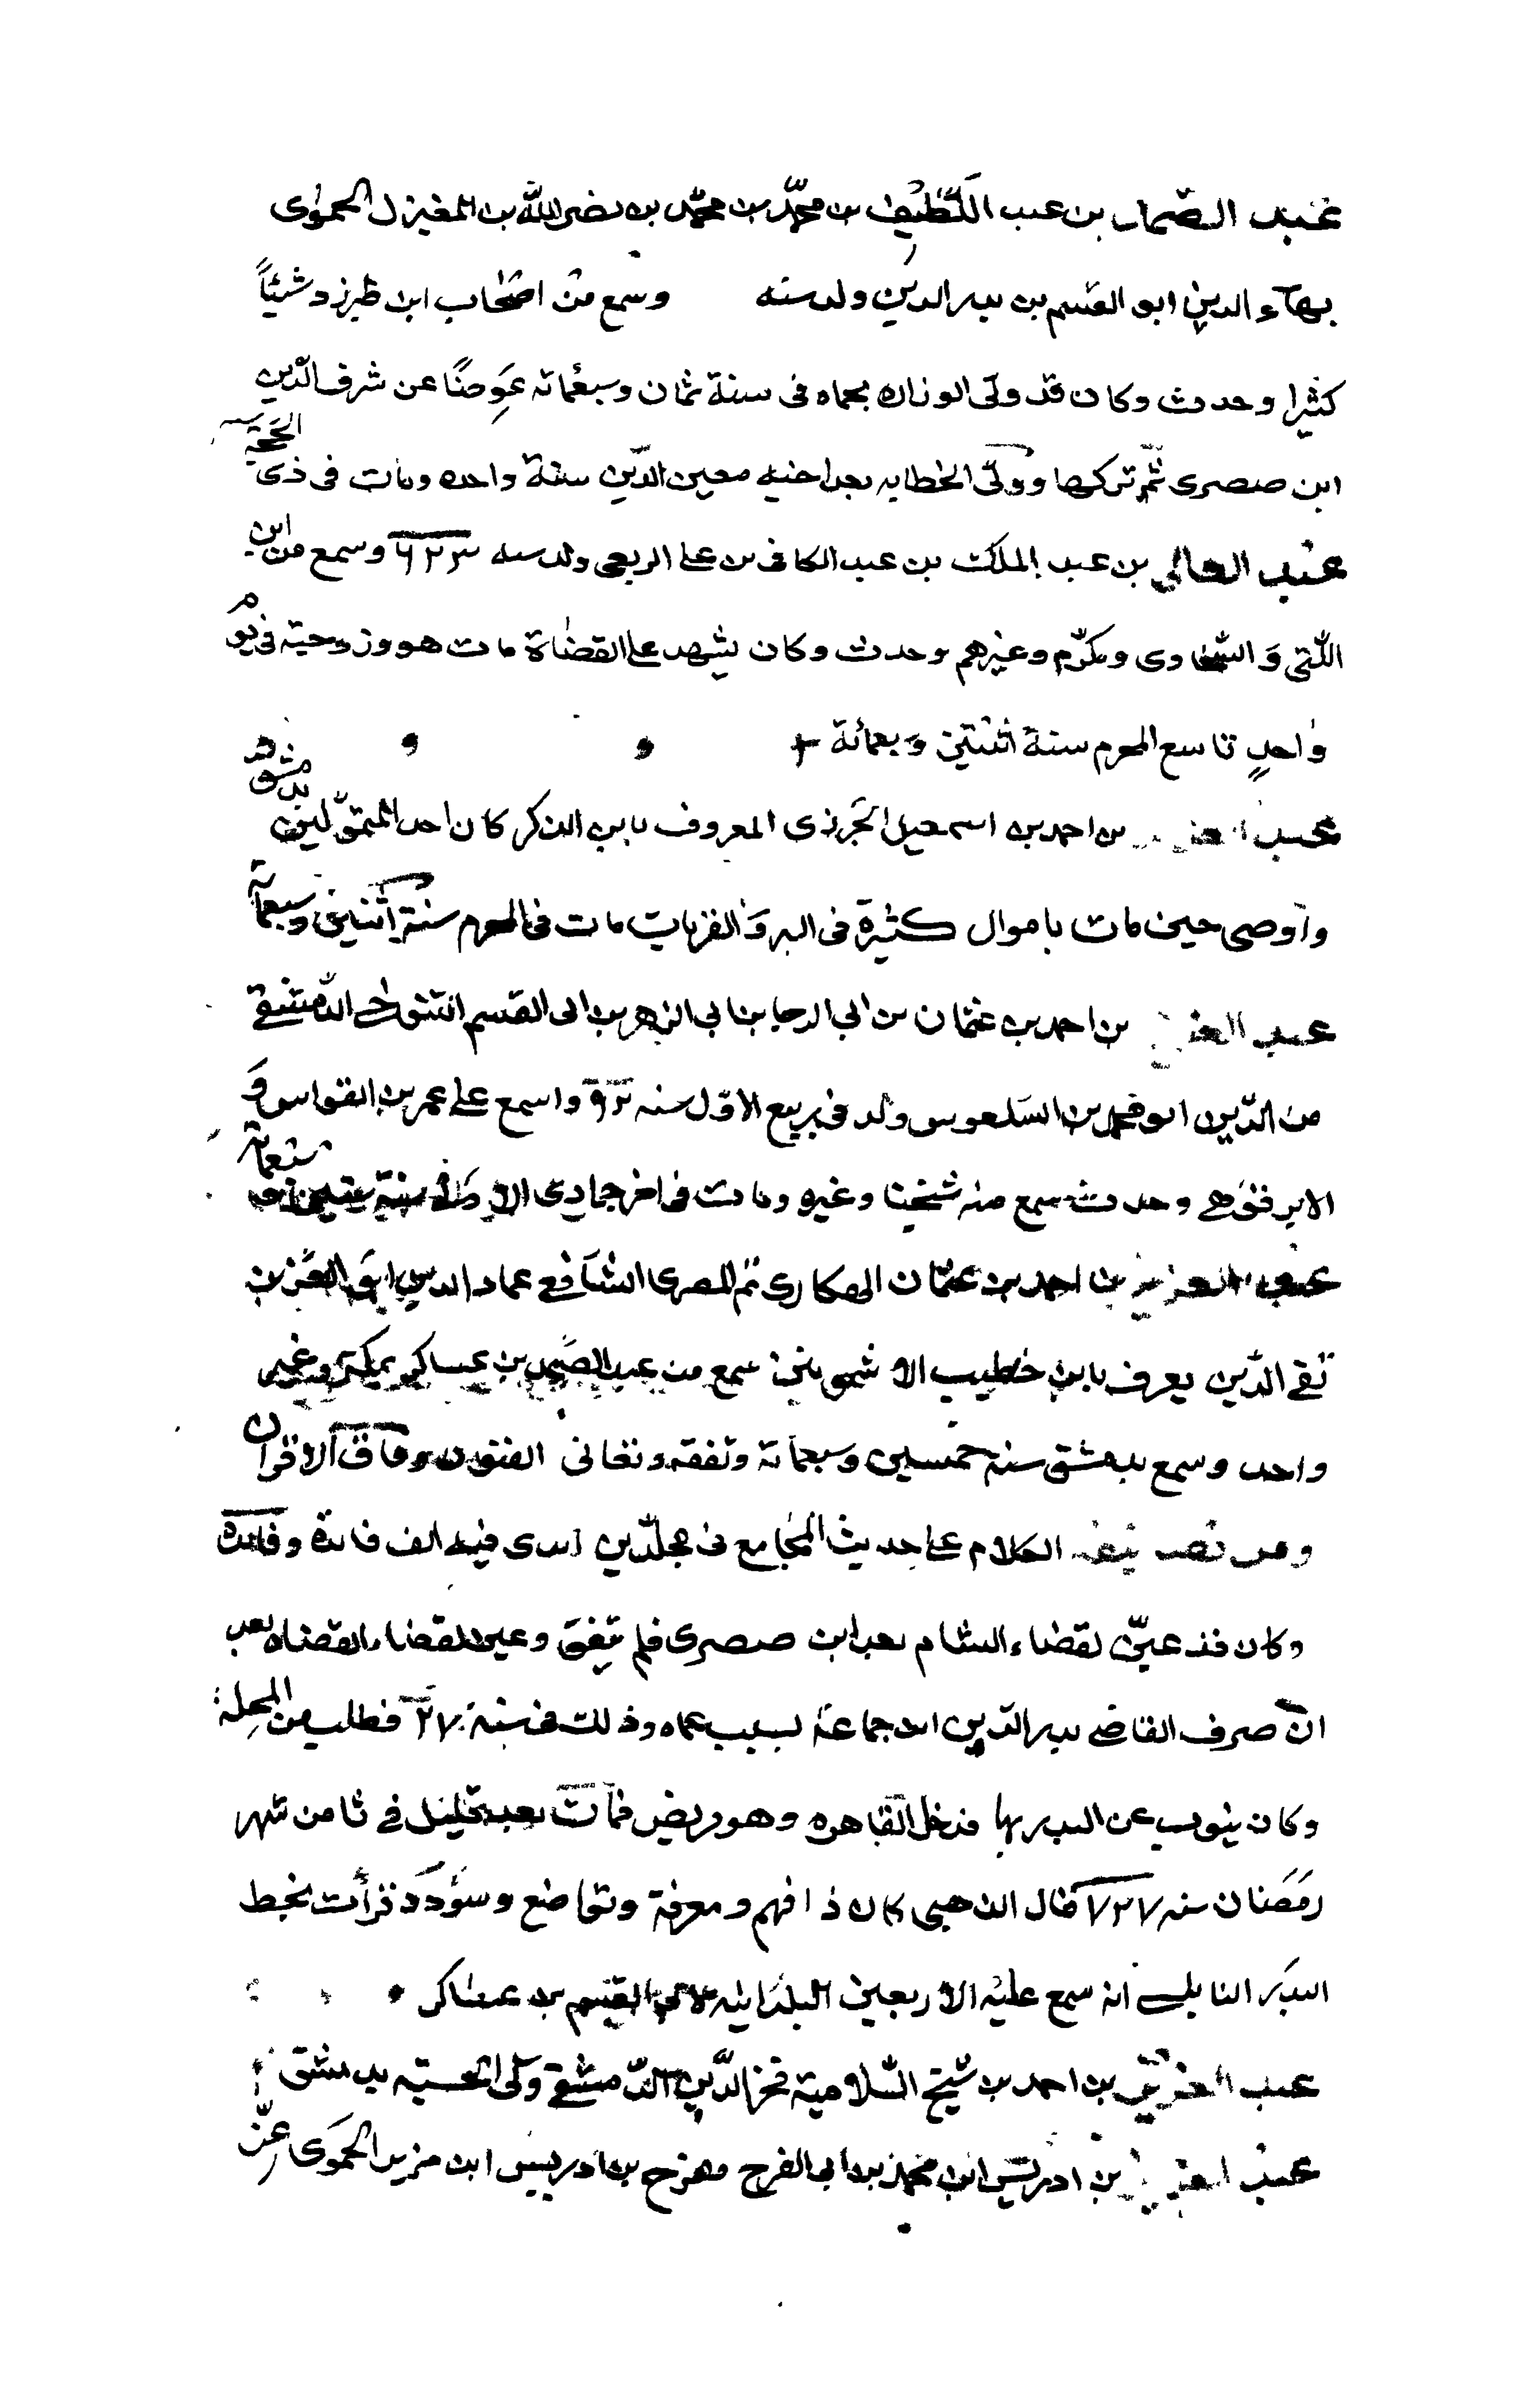 عبد الصمد بن عبد اللطيف بن محمد بن محمد بن نصر الله بن المغيزل الحموى
بهاء الدين ابو القسم بن بدر الدين ولد سنه وسمع من اصحاب ابن طبرزد شيئاً
كثيرا وحدث وكان قد ولى الوزاره بحماه فى سنة ثمان وسبعمائه عوضًا عن شرف الدين
ابن صصرى ثم تركها وولى الخطابه بعد اخيه معين الدين سنة واحده ومات فى ذى الحجة
عبد العالى بن عبد الملك بن عبد الكافى بن على الربعى ولد سنه ٦٢٣ وسمع من ابن
اللتى والسخاوى ومكرم وغيرهم وحدث وكان يشهد على القضاة مات هو وزوجته فى يوم
واحدٍ تاسع المحرم سنة اثنتين وبعمائة
عبد العزيز بن احمد بن اسمعيل الجزرى المعروف بابن الذكر كان احد المتمولين بدمشق
واوصى حين مات باموال كثيرة فى البر والقربات مات فى المحرم سنة اثنتين وسبعمائة
عبد العزيز بن احمد بن عثمان بن ابي الرجا بن ابي الزهر بن ابى القسم التنوخى الدمشقى
من الدين ابو محمد بن السلعوس ولد فى ربيع الاول سنه ٦٩٢ واسمع على عمر بن القواس و
الابرقوهى وحدث سمع منه شيخنا وغيره ومات فى اخر جمادى سنة
عبد العزيز بن احمد بن عثمان الهكارى ثم المصرى الشافعى عماد الدين ابو العز بن
تقى الدين يعرف بابن خطيب الاشمونين سمع من عبد الصمد بن عساكر بمكة وغير
واحد وسمع بدمشق سنه خمسين وسبعمائة وتفقه وتعانى الفنون وفاق الاقران
ومن تصنيفه الكلام على حديث المجامع فى مجلدين ابدى فيه الف فائدة وفائدة
وكان قد عين لقضاء الشام بعد ابن صصرى فلم يتفق وعين لقضاء القضاه بعد
ان صرف القاضى بدر الدين ابن جماعة بسبب عماه وذلك فى سنة ٧٢٧ فطلب من المحلة
وكان ينوب عن البدر بها فدخل القاهره وهو مريض فمات بعد قليل فى ثامن شهر
رمضان سنه ٧٢٧ قال الذهبى كان ذا فهم ومعرفة وتواضع وسؤدد قرأت بخط
البدر النابلسى انه سمع عليه الاربعين البلدانيه لابى القسم بن عساكر
عبد العزيز بن احمد بن شيخ السلامية فخر الدين الدمشقى ولى الحسبه بدمشق
عبد العزيز بن ادريس ابن محمد بن ابى الفرج مفرح بن ادريس ابن مزيد الحموى عز